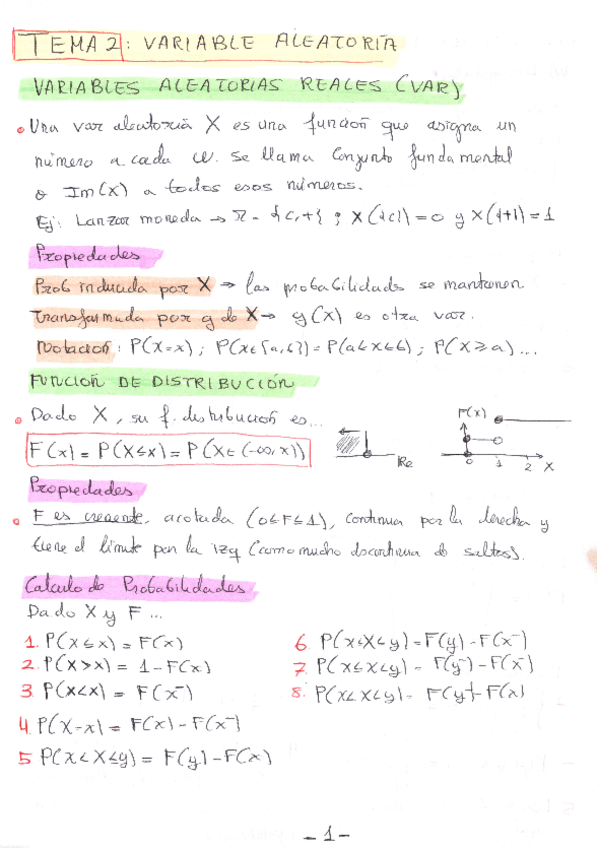 TEMA 2: VARIABLE ALEATORIA
VARIABLES ALEATORIAS REALES (VAR)
Una var aleatoria X es una función que asigna un
número a cada w. Se llama conjunto fundamental
o Im(X) a todos esos números.
Ej: Lanzar moneda → Ω = {c,+} ; X({c})=0 y X({+})=1
Propiedades
Prob inducida por X → las probabilidades se mantienen
Transformada por g de X → g(X) es otra var.
Notación: P(X=x); P(X∈[a,b])=P(a≤X≤b); P(X≥a)...
FUNCIÓN DE DISTRIBUCIÓN
Dado X, su f. distribución es...
F(x) = P(X≤x) = P(X∈(-∞,x))
Re
F(x)
0 1 2 X
Propiedades
F es creciente, acotada (0≤F≤1), continua por la derecha y
tiene el límite por la izq (como mucho discontinua de saltos).
Calculo de Probabilidades
Dado X y F ...
1. P(X≤x) = F(x)
2. P(X>x) = 1-F(x)
3. P(X<x) = F(x⁻)
4. P(X=x) = F(x) - F(x⁻)
5 P(x<X≤y) = F(y) - F(x)
6. P(x≤X≤y) = F(y) - F(x⁻)
7. P(x≤X<y) = F(y⁻) - F(x⁻)
8. P(x<X<y) = F(y⁻) - F(x)
-1-